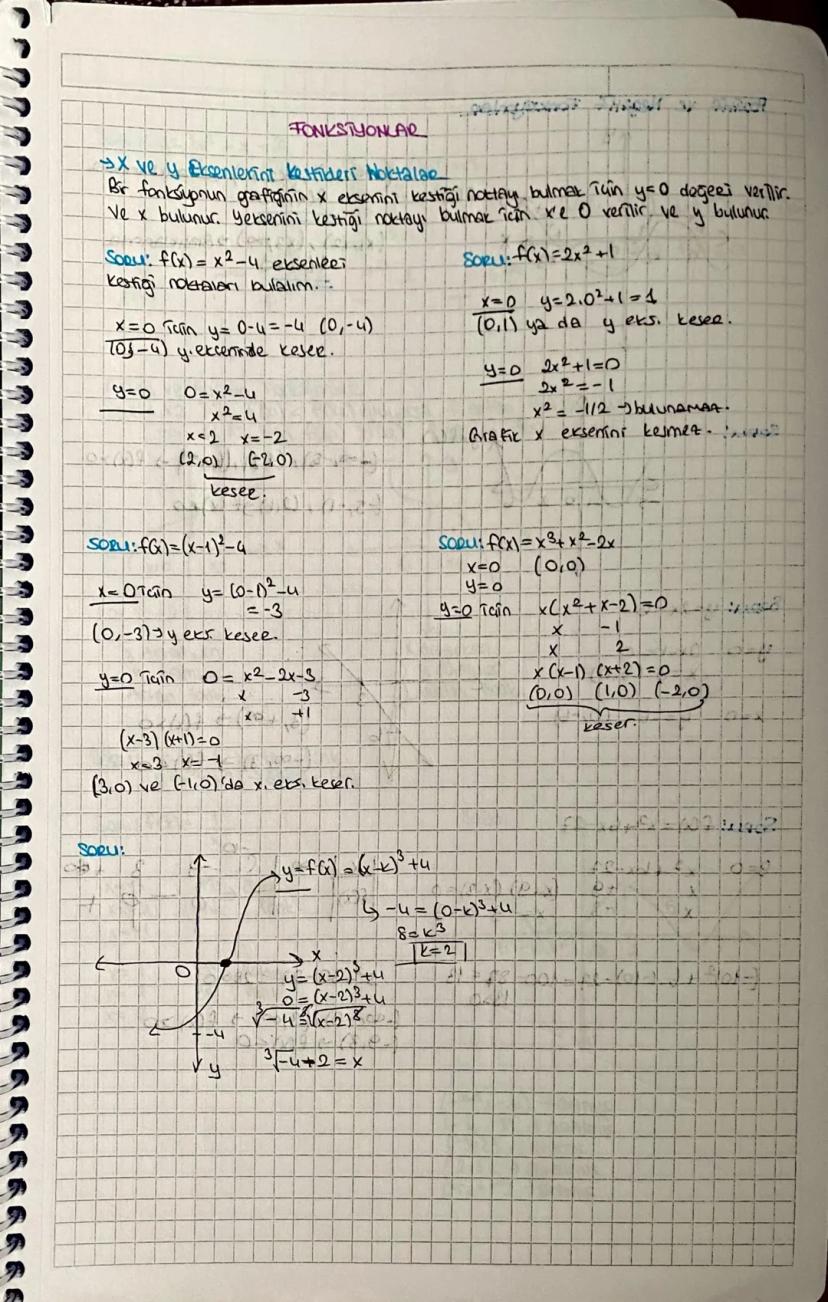 FONKSİYONLAR
→ X ve y Eksenlerini Kestikleri Noktalar
Bir fonksiyonun grafiğinin x eksenini kestiği noktayı bulmak için y=0 değeri verilir.
Ve x bulunur. Y eksenini kestiği noktayı bulmak için x'e 0 verilir ve y bulunur.
SORU: f(x) = x² - 4 eksenleri
kestiği noktaları bulalım.
x=0 için y= 0-4 = -4 (0,-4)
(0,-4) y. ekseninde keser.
y=0 0=x²-4
x²=4
x=2 x=-2
(2,0) (-2,0)
keser.
SORU: f(x)=2x²+1
x=0 y=2.0²+1=1
(0,1) ya da y eks. keser.
y=0 2x²+1=0
2x²=-1
x²= -1/2 → bulunamaz.
Grafik x eksenini kesmez.
SORU: f(x)=(x-1)²-4
x=0 için y=(0-1)²-4
= -3
(0,-3)→y eks keser.
y=0 için 0= x²-2x-3
x -3
x +1
(x-3) (x+1)=0
x=3 x=-1
(3,0) ve (-1,0)'da x. eks. keser.
SORU: f(x)=x³+x²-2x
x=0 (0,0)
y=0
y=0 için x(x²+x-2)=0
x -1
x 2
x(x-1) (x+2)=0
(0,0) (1,0) (-2,0)
keser.
SORU:
y=f(x) = (x-k)³+4
↳ -4 = (0-k)³+4
8=k³
k=2
0 x
y=(x-2)³+4
0=(x-2)³+4
³√-4 = ³√(x-2)³
-4
y ³√-4+2=x